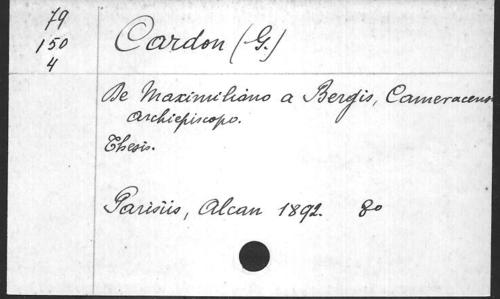 79
150
4
Cardon (G.)
De Maximiliano a Bergis, Cameracensi
archiepiscopo.
Thesis.
Parisiis, Alcan 1892. 8o